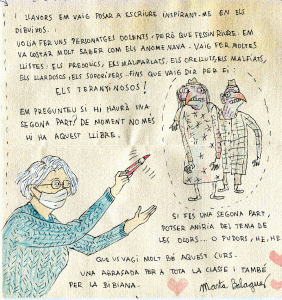 I LLAVORS EM VAIG POSAR A ESCRIURE INSPIRANT-ME EN ELS
DIBUIXOS.
VOLIA FER UNS PERSONATGES DOLENTS, PERÒ QUE FESSIN RIURE. EM
VA COSTAR MOLT SABER COM ELS ANOMENAVA. VAIG FER MOLTES
LLISTES: ELS MALPARLATS, ELS ORELLUTS, ELS MALFIATS,
ELS LLARDOSOS, ELS FINS QUE VAIG DIR PER FI:
ELS TERANYINOSOS!
EM PREGUNTEU SI HI HAURÀ UNA
SEGONA PART! DE MOMENT NOMÉS
HI HA AQUEST LLIBRE.
SI FES UNA SEGONA PART,
POTSER ANIRIA DEL TEMA DE
LES OLORS... O PUDORS, HE, HE
QUE US VAGI MOLT BÉ AQUEST CURS.
UNA ABRAÇADA PER A TOTA LA CLASSE I TAMBÉ
PER LA BIBIANA.
Marta Balaguer